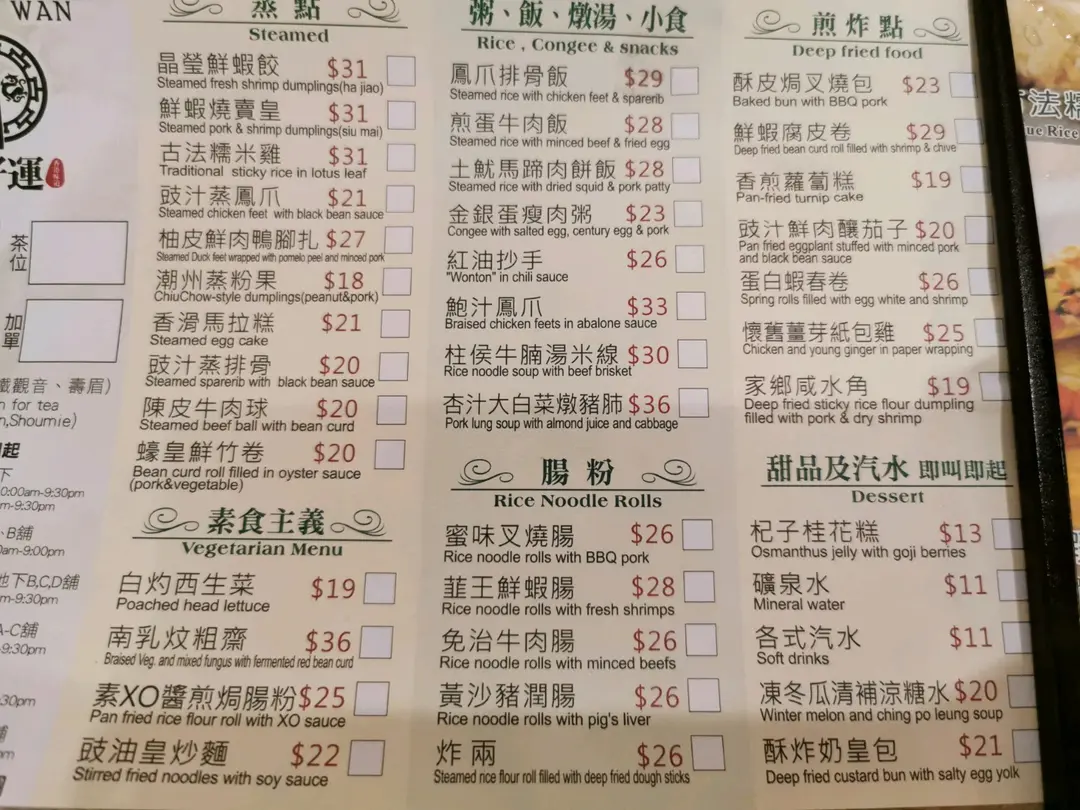 WAN
好運
茶位
加單
鐵觀音、壽眉)
n for tea
n,Shoumie)
起
下
0:00am-9:30pm
m-9:30pm
、B舖
0am-9:00pm
地下B,C,D舖
m-9:30pm
A-C舖
-9:30pm
30pm
蒸點
Steamed
晶瑩鮮蝦餃 $31
Steamed fresh shrimp dumplings(ha jiao)
鮮蝦燒賣皇 $31
Steamed pork & shrimp dumplings(siu mai)
古法糯米雞 $31
Traditional sticky rice in lotus leaf
豉汁蒸鳳爪 $21
Steamed chicken feet with black bean sauce
柚皮鮮肉鴨腳扎 $27
Steamed Duck feet wrapped with pomelo peel and minced pork
潮州蒸粉果 $18
ChiuChow-style dumplings(peanut&pork)
香滑馬拉糕 $21
Steamed egg cake
豉汁蒸排骨 $20
Steamed sparerib with black bean sauce
陳皮牛肉球 $20
Steamed beef ball with bean curd
蠔皇鮮竹卷 $20
Bean curd roll filled in oyster sauce
(pork&vegetable)
素食主義
Vegetarian Menu
白灼西生菜 $19
Poached head lettuce
南乳炆粗齋 $36
Braised Veg. and mixed fungus with fermented red bean curd
素XO醬煎焗腸粉 $25
Pan fried rice flour roll with XO sauce
豉油皇炒麵 $22
Stirred fried noodles with soy sauce
粥、飯、燉湯、小食
Rice , Congee & snacks
鳳爪排骨飯 $29
Steamed rice with chicken feet & sparerib
煎蛋牛肉飯 $28
Steamed rice with minced beef & fried egg
土魷馬蹄肉餅飯 $28
Steamed rice with dried squid & pork patty
金銀蛋瘦肉粥 $23
Congee with salted egg, century egg & pork
紅油抄手 $26
"Wonton" in chili sauce
鮑汁鳳爪 $33
Braised chicken feets in abalone sauce
柱侯牛腩湯米線 $30
Rice noodle soup with beef brisket
杏汁大白菜燉豬肺 $36
Pork lung soup with almond juice and cabbage
腸粉
Rice Noodle Rolls
蜜味叉燒腸 $26
Rice noodle rolls with BBQ pork
韮王鮮蝦腸 $28
Rice noodle rolls with fresh shrimps
免治牛肉腸 $26
Rice noodle rolls with minced beefs
黃沙豬潤腸 $26
Rice noodle rolls with pig's liver
炸兩 $26
Steamed rice flour roll filled with deep fried dough sticks
煎炸點
Deep fried food
酥皮焗叉燒包 $23
Baked bun with BBQ pork
鮮蝦腐皮卷 $29
Deep fried bean curd roll filled with shrimp & chive
香煎蘿蔔糕 $19
Pan-fried turnip cake
豉汁鮮肉釀茄子 $20
Pan fried eggplant stuffed with minced pork
and black bean sauce
蛋白蝦春卷 $26
Spring rolls filled with egg white and shrimp
懷舊薑芽紙包雞 $25
Chicken and young ginger in paper wrapping
家鄉咸水角 $19
Deep fried sticky rice flour dumpling
filled with pork & dry shrimp
甜品及汽水 即叫即起
Dessert
杞子桂花糕 $13
Osmanthus jelly with goji berries
礦泉水 $11
Mineral water
各式汽水 $11
Soft drinks
凍冬瓜清補涼糖水 $20
Winter melon and ching po leung soup
酥炸奶皇包 $21
Deep fried custard bun with salty egg yolk
法糯
ue Rice